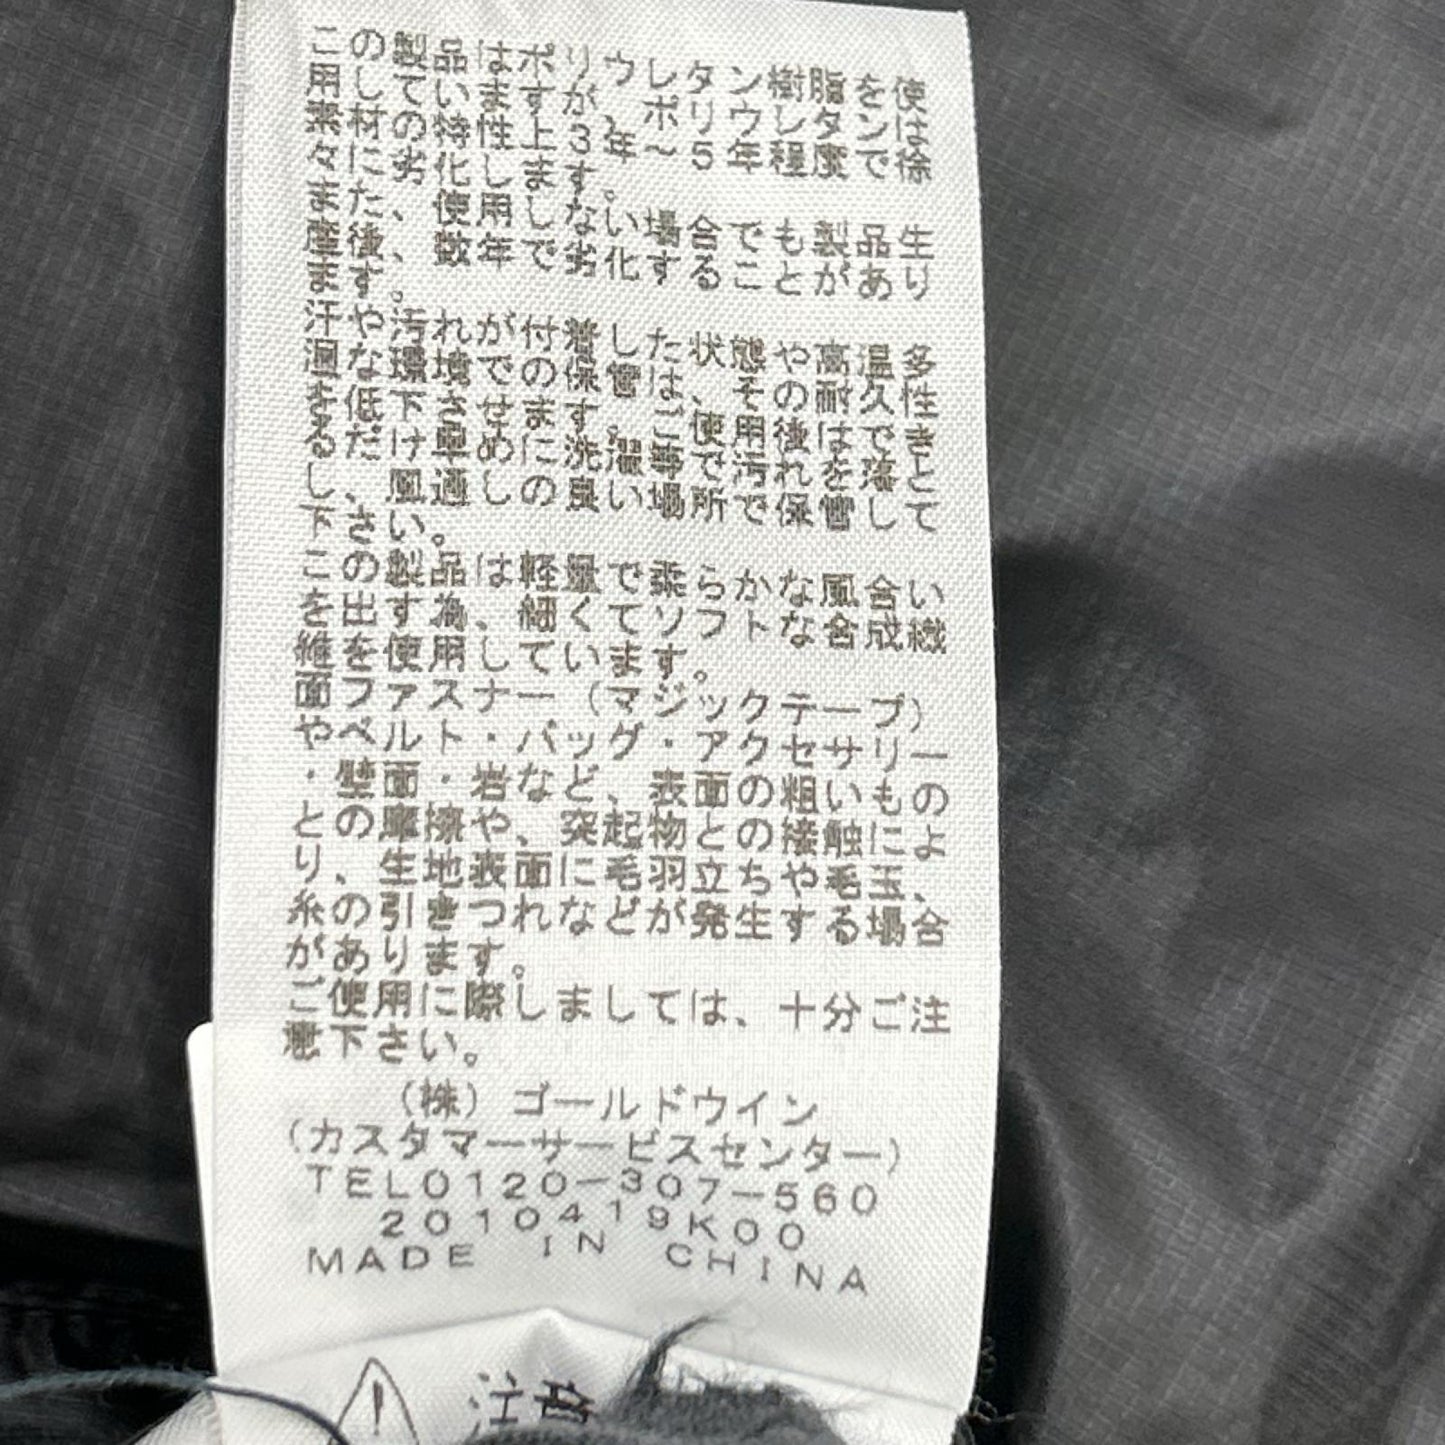 この製品はポリウレタン樹脂を使
用していますが、ポリウレタンは
素材の特性上3年～5年程度で徐
々に劣化します。
また、使用しない場合でも製品生
産後、数年で劣化することがあり
ます。
汗や汚れが付着した状態や高温多
湿な環境での保管は、その耐久性
を低下させます。ご使用後はでき
るだけ早めに洗濯等で汚れを落と
し、風通しの良い場所で保管して
下さい。
この製品は軽量で柔らかな風合い
を出す為、細くてソフトな合成繊
維を使用しています。
面ファスナー（マジックテープ）
やベルト・バッグ・アクセサリー
・壁面・岩など、表面の粗いもの
との摩擦や、突起物との接触によ
り、生地表面に毛羽立ちや毛玉、
糸の引きつれなどが発生する場合
があります。
ご使用に際しましては、十分ご注
意下さい。
（株）ゴールドウイン
（カスタマーサービスセンター）
TEL0120-307-560
2010419K00
MADE IN CHINA
注意